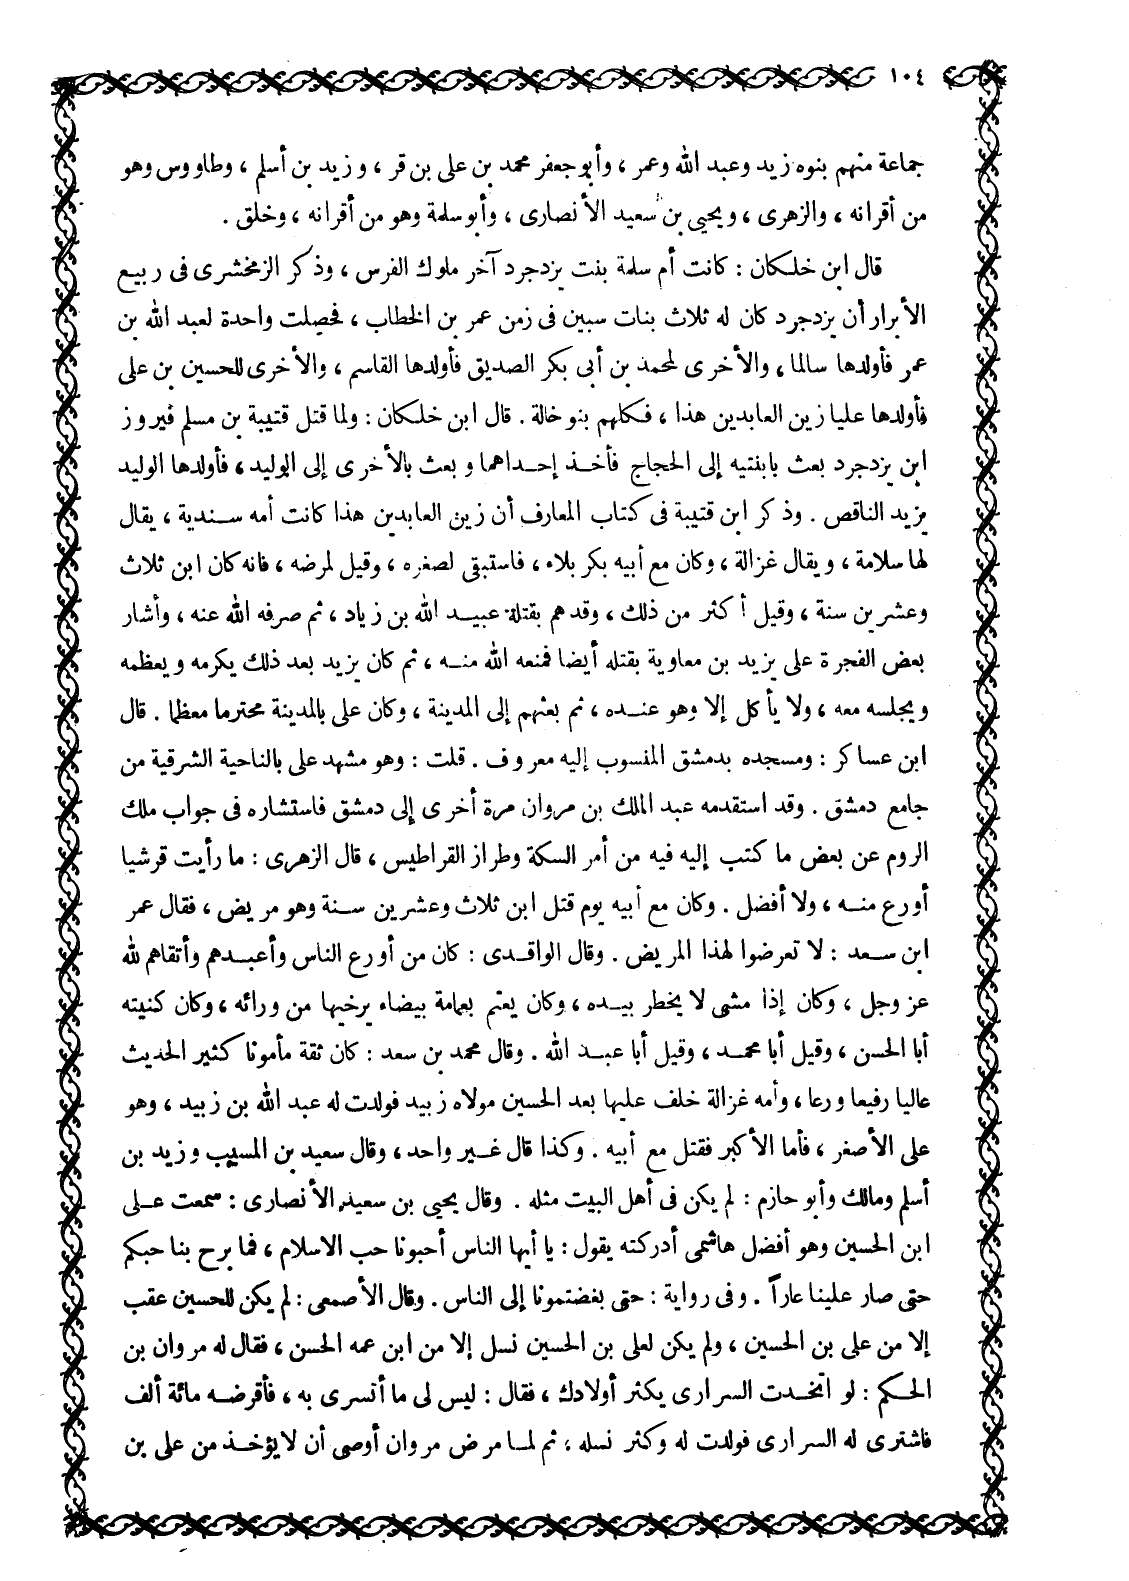 ١٠٤
جماعة منهم بنوه زيد وعبد الله وعمر ، وأبو جعفر محمد بن على بن قر ، وزيد بن أسلم ، وطاووس وهو
من أقرانه ، والزهرى ، ويحيى بن سعيد الأنصارى ، وأبو سلمة وهو من أقرانه ، وخلق .
قال ابن خلكان : كانت أم سلمة بنت يزدجرد آخر ملوك الفرس ، وذكر الزمخشرى فى ربيع
الأبرار أن يزدجرد كان له ثلاث بنات سبين فى زمن عمر بن الخطاب ، فحصلت واحدة لعبد الله بن
عمر فأولدها سالما ، والأخرى لمحمد بن أبى بكر الصديق فأولدها القاسم ، والأخرى للحسين بن على
فأولدها عليا زين العابدين هذا ، فكلهم بنو خالة . قال ابن خلكان : ولما قتل قتيبة بن مسلم فيروز
ابن يزدجرد بعث بابنتيه إلى الحجاج فأخذ إحداهما وبعث بالأخرى إلى الوليد ، فأولدها الوليد
يزيد الناقص . وذكر ابن قتيبة فى كتاب المعارف أن زين العابدين هذا كانت أمه سندية ، يقال
لها سلامة ، ويقال غزالة ، وكان مع أبيه بكربلاء ، فاستبقى لصغره ، وقيل لمرضه ، فانه كان ابن ثلاث
وعشرين سنة ، وقيل أكثر من ذلك ، وقد هم بقتله عبيد الله بن زياد ، ثم صرفه الله عنه ، وأشار
بعض الفجرة على يزيد بن معاوية بقتله أيضا فمنعه الله منه ، ثم كان يزيد بعد ذلك يكرمه ويعظمه
ويجلسه معه ، ولا يأكل إلا وهو عنده ، ثم بعثهم إلى المدينة ، وكان على بالمدينة محترما معظما . قال
ابن عساكر : ومسجده بدمشق المنسوب إليه معروف . قلت : وهو مشهد على بالناحية الشرقية من
جامع دمشق . وقد استقدمه عبد الملك بن مروان مرة أخرى إلى دمشق فاستشاره فى جواب ملك
الروم عن بعض ما كتب إليه فيه من أمر السكة وطراز القراطيس ، قال الزهرى : ما رأيت قرشيا
أورع منه ، ولا أفضل . وكان مع أبيه يوم قتل ابن ثلاث وعشرين سنة وهو مريض ، فقال عمر
ابن سعد : لا تعرضوا لهذا المريض . وقال الواقدى : كان من أورع الناس وأعبدهم وأتقاهم لله
عز وجل ، وكان إذا مشى لا يخطر بيده ، وكان يعتم بعمامة بيضاء يرخيها من ورائه ، وكان كنيته
أبا الحسن ، وقيل أبا محمد ، وقيل أبا عبد الله . وقال محمد بن سعد : كان ثقة مأمونا كثير الحديث
عاليا رفيعا ورعا ، وأمه غزالة خلف عليها بعد الحسين مولاه زبيد فولدت له عبد الله بن زبيد ، وهو
على الأصغر ، فأما الأكبر فقتل مع أبيه . وكذا قال غير واحد ، وقال سعيد بن المسيب وزيد بن
أسلم ومالك وأبو حازم : لم يكن فى أهل البيت مثله . وقال يحيى بن سعيد الأنصارى : سمعت على
ابن الحسين وهو أفضل هاشمى أدركته يقول : يا أيها الناس أحبونا حب الاسلام ، فما برح بنا حبكم
حتى صار علينا عاراً . وفى رواية : حتى بغضتمونا إلى الناس . وقال الأصمعى : لم يكن للحسين عقب
إلا من على بن الحسين ، ولم يكن لعلى بن الحسين نسل إلا من ابن عمه الحسن ، فقال له مروان بن
الحكم : لو اتخذت السرارى يكثر أولادك ، فقال : ليس لى ما أتسرى به ، فأقرضه مائة ألف
فاشترى له السرارى فولدت له وكثر نسله ، ثم لما مرض مروان أوصى أن لا يؤخذ من على بن